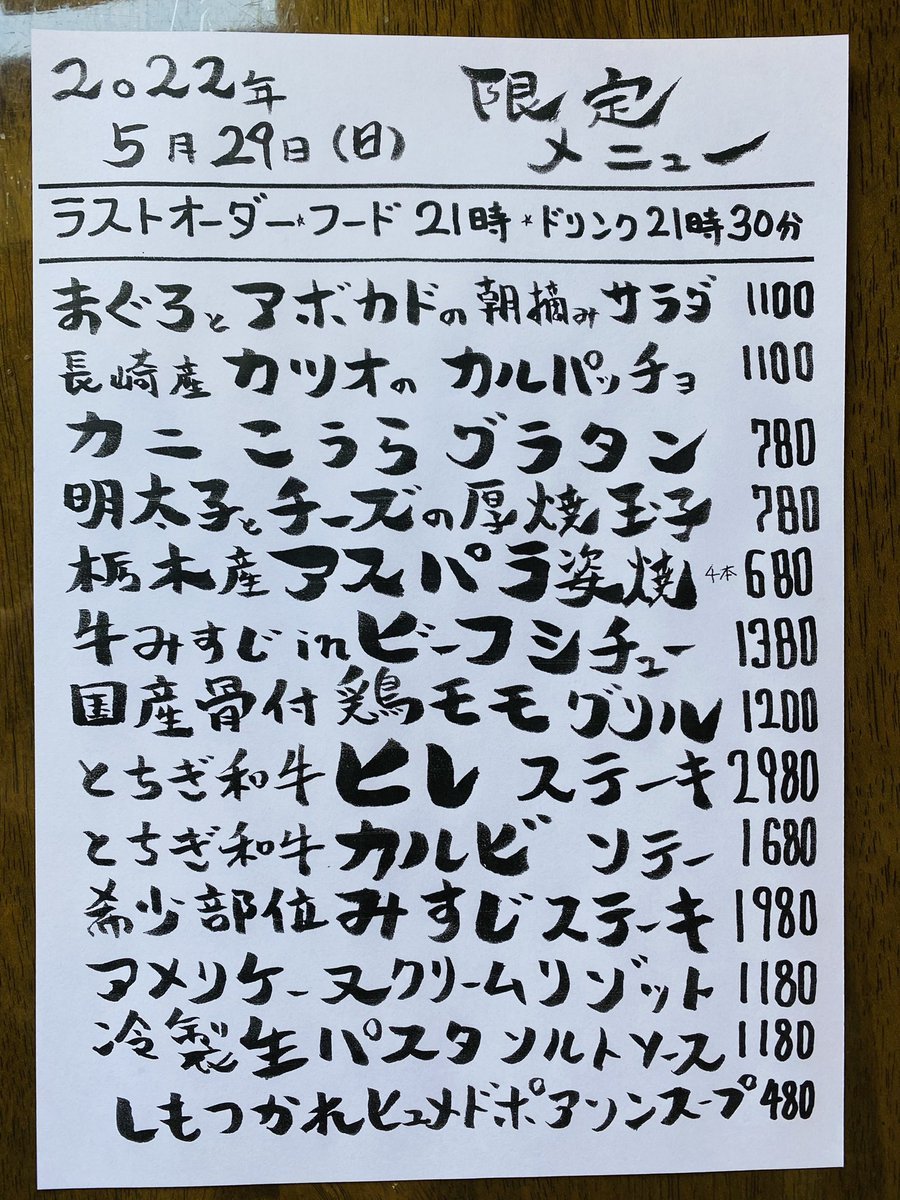 2022年 限定
5月29日(日) メニュー
ラストオーダー*フード 21時 *ドリンク21時30分
まぐろとアボカドの朝摘みサラダ 1100
長崎産 カツオの カルパッチョ 1100
カニ こうら グラタン 780
明太子とチーズの厚焼玉子 780
栃木産アスパラ姿焼 4本 680
牛みすじinビーフシチュー 1380
国産骨付鶏モモグリル 1200
とちぎ和牛 ヒレ ステーキ 2980
とちぎ和牛カルビ ソテー 1680
希少部位みすじステーキ 1980
アメリケーヌクリームリゾット 1180
冷製生パスタソルトソース 1180
しもつかれヒュメドポアソンスープ 480